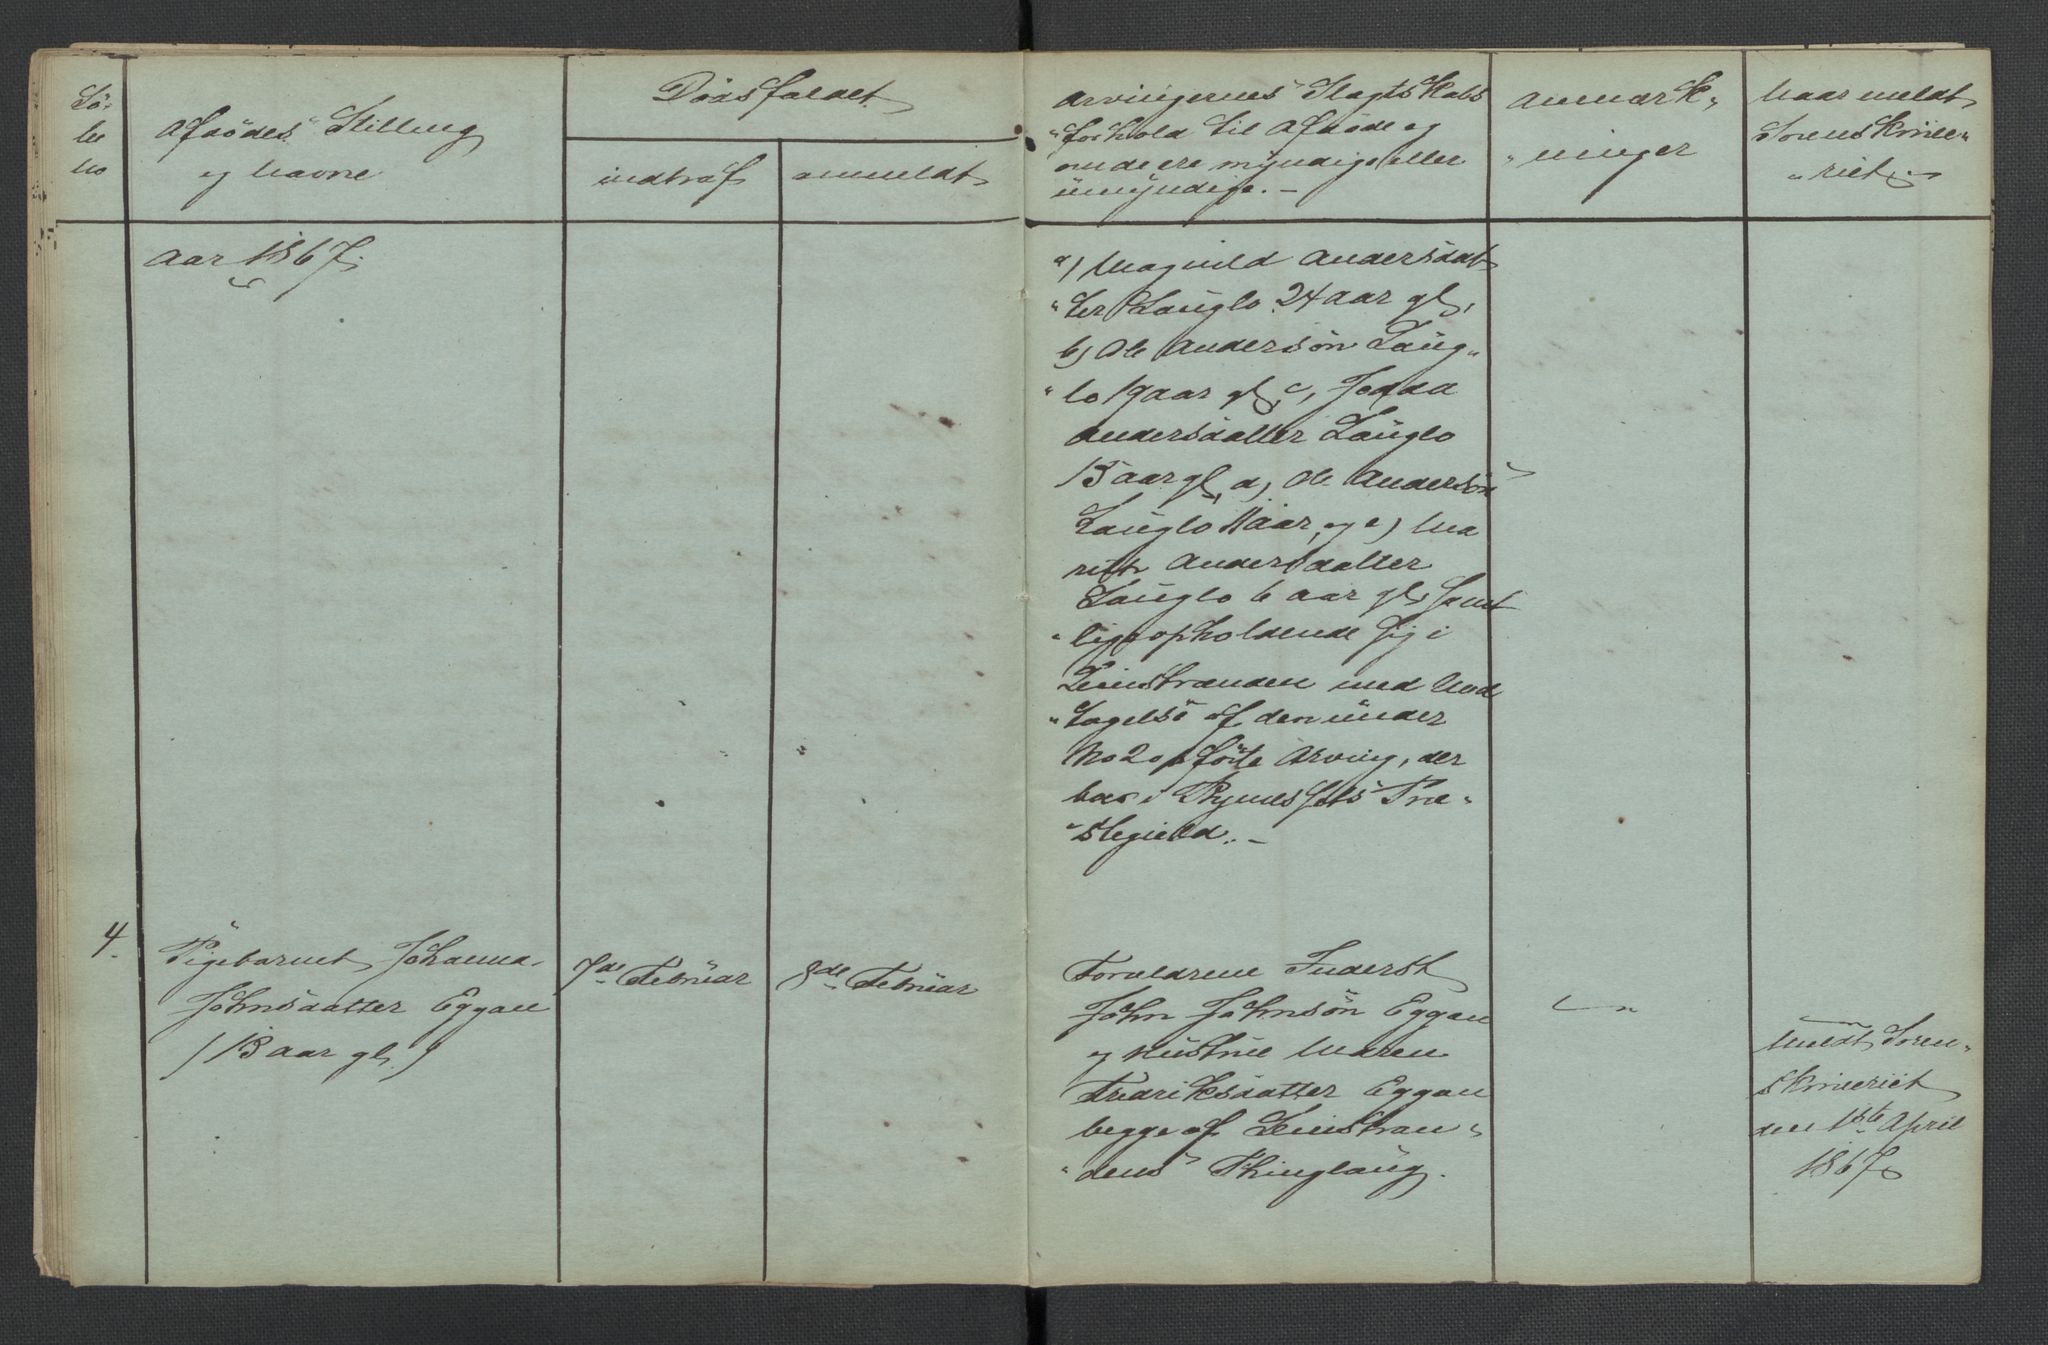 Lö-
be
No
Afdødes Stilling
og Navne
Dødsfaldet
indtraf
anmeldt
Arvingernes Slagtskabs
"forhold til Afdøde og
om de ere myndige eller
umyndige. —
Anmærk-
"ninger
Naar meldt
Sorenskrive-
"riet.
Aar 1867.
a) Magnild Andersdat
"ter Lauglo 24 aar gl,
b) Ole Andersøn Laug-
"lo 19 aar gl, c,
Andersdatter Lauglo
15 aar gl, d, Ole Andersøn
Lauglo 11 aar, og e) Ma
rith Andersdatter
Lauglo 6 aar gl, samt
"lige opholdende sig i
Leinstranden med Und
"tagelse af den under
No 2 opførte Arving, der
boer i Præ-
"stegield. —
4.
Pigebarnet Johanna
Johnsdatter Eggan
(13 aar gl.)
7de Februar
8de Februar
Forældrene Inderst
John Johnsøn Eggan
og Hustrue Maren
Fredriksdatter Eggan
begge af Leinstran-
"dens Thinglaug.
Meldt Soren-
skriveriet
den 1ste April
1867